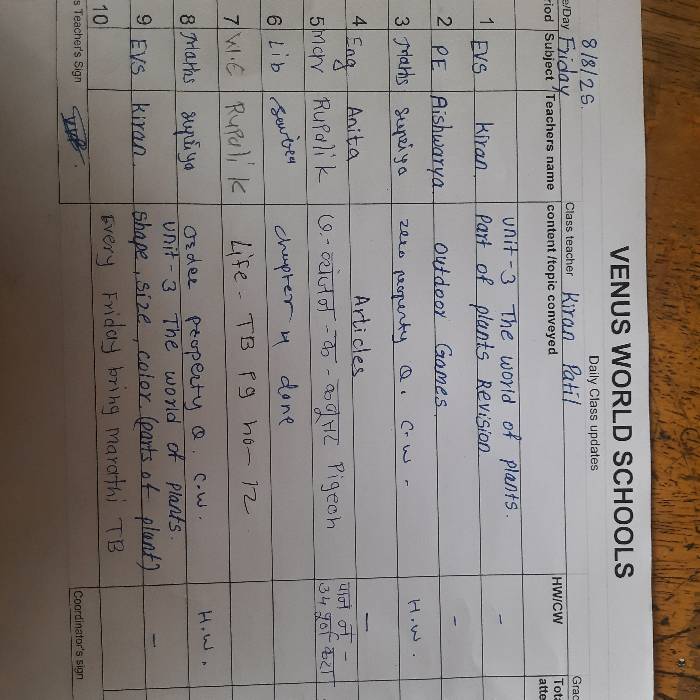 VENUS WORLD SCHOOLS
Daily Class updates
8/8/25.
e/Day Friday Class teacher Kiran Patil Grad
riod Subject Teachers name content /topic conveyed HW/CW Tota
atte
unit-3 The world of plants.
1 EVS Kiran. part of plants Revision -
2 PE Aishwarya outdoor Games -
3 Maths supriya zero property Q. C.W. H.W.
4 Eng Anita Articles -
5 Rupali K
6 Lib chapter 4 done
7 W.E Rupali K Life - TB pg no - 12
8 Maths supriya order property Q. C.W. H.W.
unit-3 The world of plants.
9 EVS Kiran. shape, size, color (parts of plant) -
10 Every Friday bring Marathi TB
s Teacher's Sign Coordinator's sign